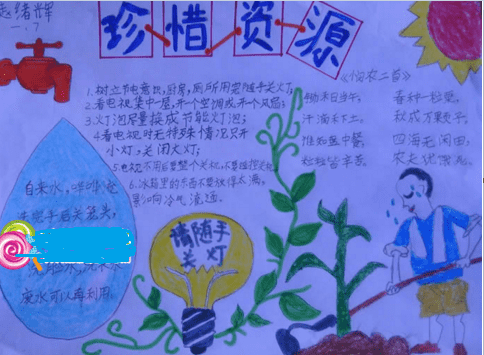 赵绪辉
一、7
珍惜资源
1.树立节电意识,厨房,厕所用完随手关灯;
2.看电视集中一屋,开一个空调或开一个风扇;
3.灯泡尽量换成节能灯泡;
4看电视时无特殊情况只开
小灯,关闭大灯;
5.电视不用后要整个关机,不要遥控关机
6.冰箱里的东西不要放得太满,
影响冷气流通.
《悯农二首》
锄禾日当午,
汗滴禾下土。
谁知盘中餐,
粒粒皆辛苦。
春种一粒粟,
秋成万颗子。
四海无闲田,
农夫犹饿死。
自来水,哗啦啦
洗完手后关笼头,
水,洗米水
废水可以再利用.
请随手
关灯